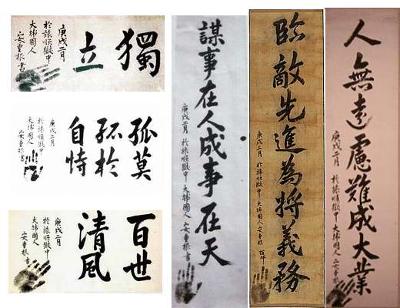 獨立
庚戌二月
於旅順獄中
大韓國人
安重根書
孤莫
孤於
自恃
庚戌二月
於旅順獄中
大韓國人
安重根書
百世
清風
庚戌二月
於旅順獄中
大韓國人
安重根書
謀事在人成事在天
庚戌二月 於旅順獄中 大韓國人 安重根書
臨敵先進為將義務
庚戌二月 於旅順獄中 大韓國人 安重根
人無遠慮難成大業
庚戌二月 於旅順獄中 大韓國人 安重根書